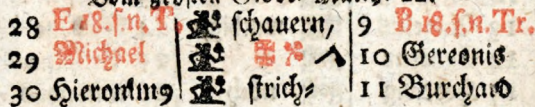 28 E 18. s. n. T. schauern, 9 B 18. s. n. Tr.
29 Michael 10 Gereonis
30 Hieronim9 strich- 11 Burchard